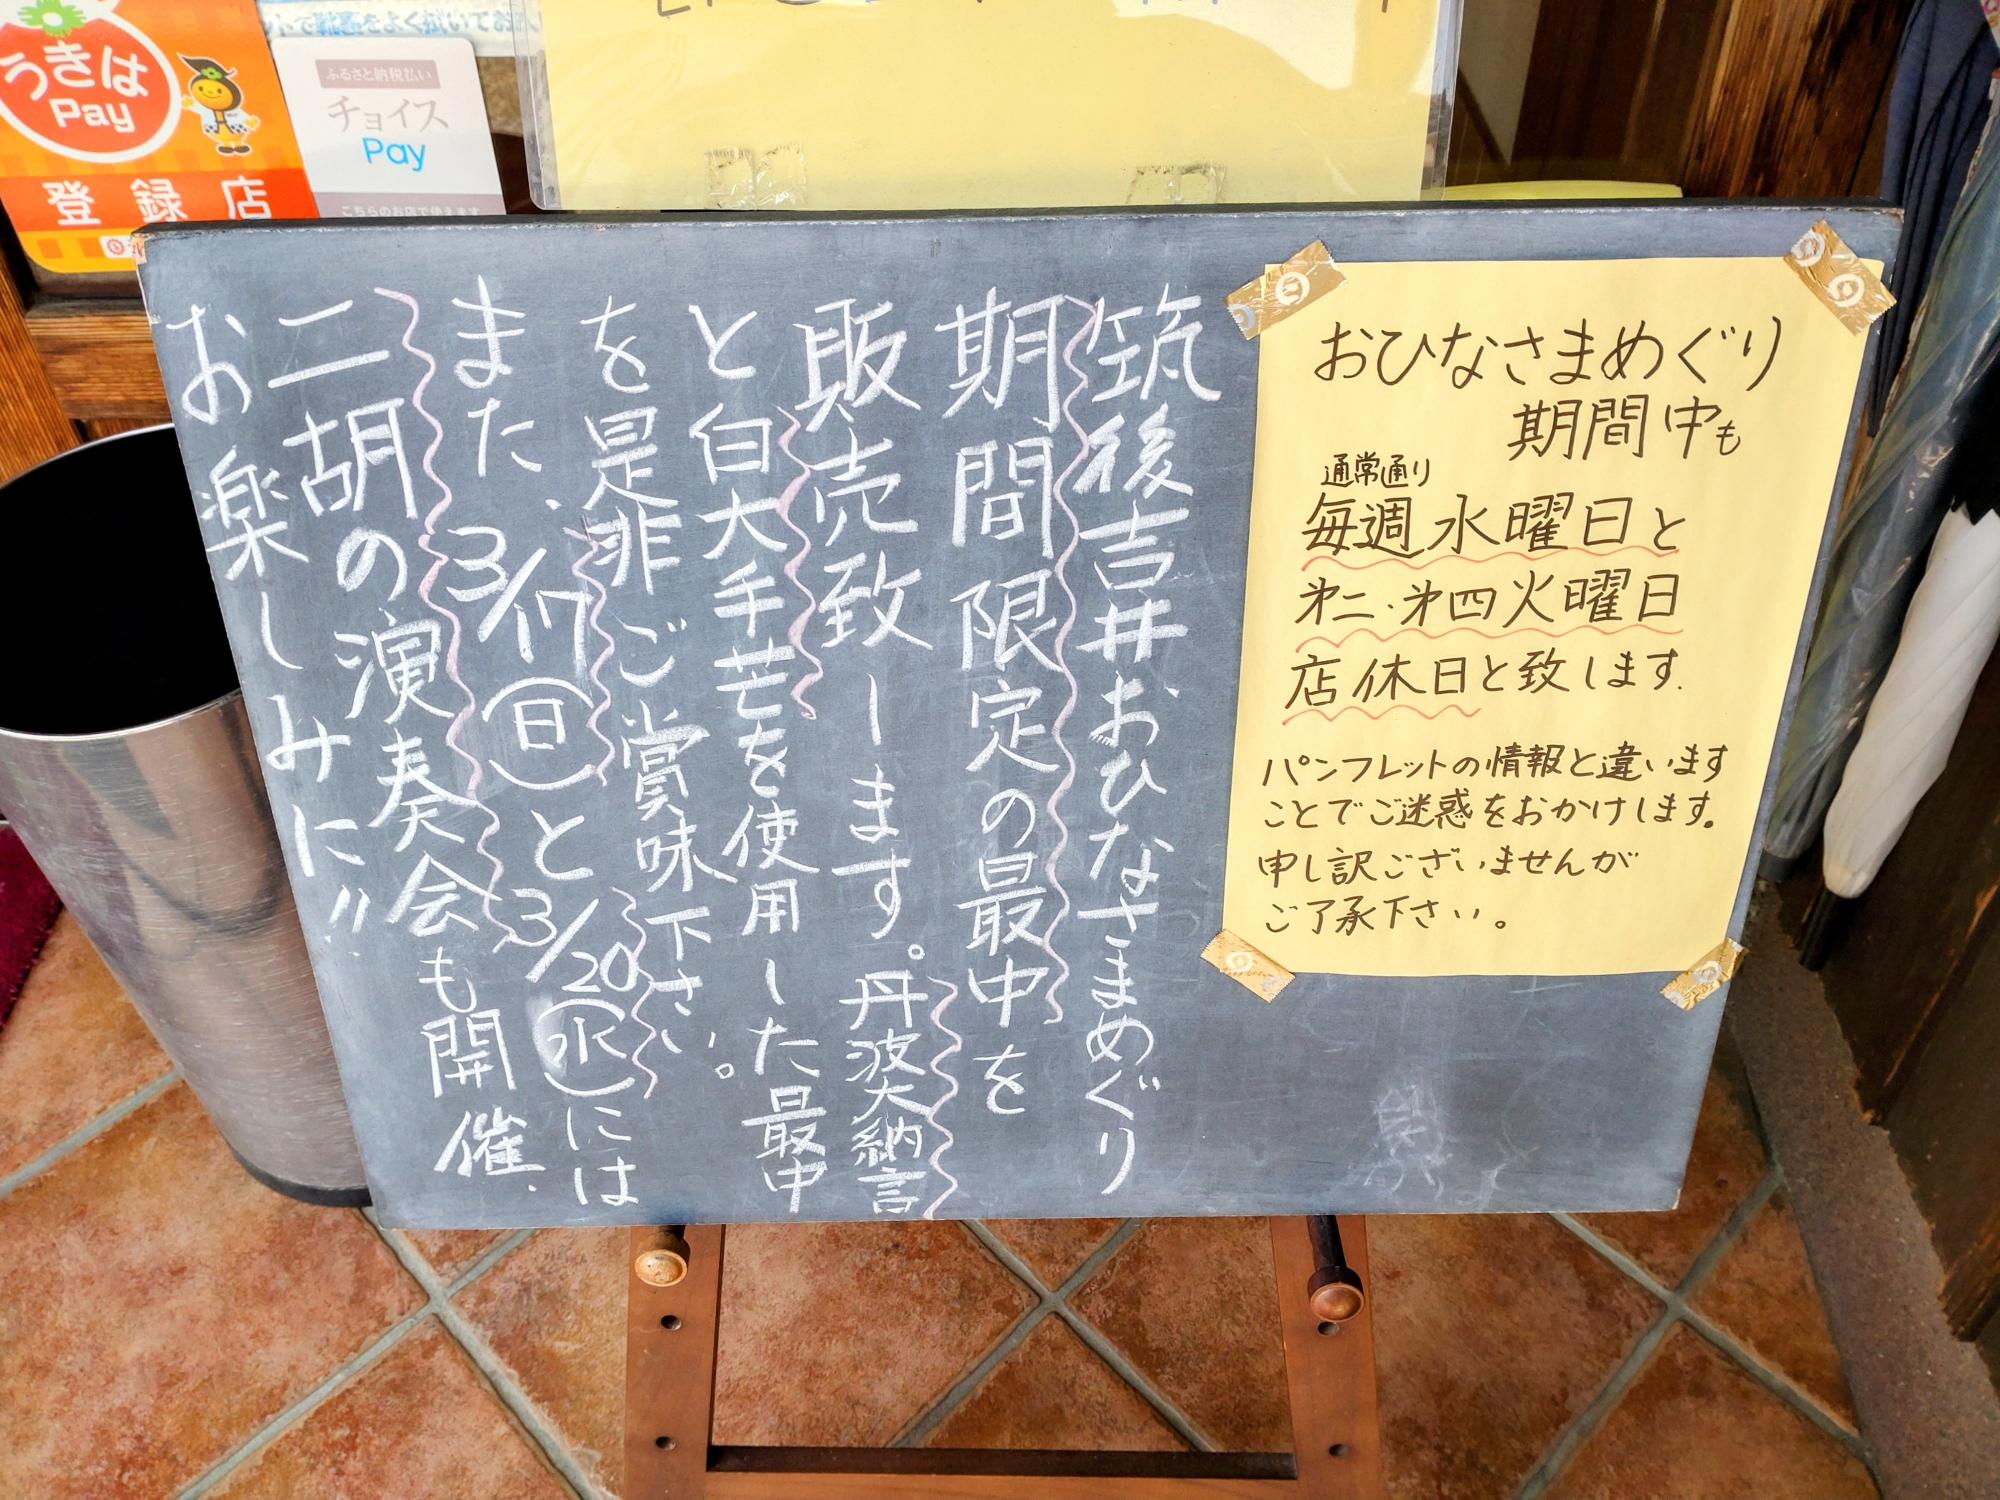 うきは
Pay
登録店
ふるさと納税払い
チョイス
Pay
こちらのお店で使えます
おひなさまめぐり
期間中も
通常通り
毎週水曜日と
第二・第四火曜日
店休日と致します.
パンフレットの情報と違います
ことでご迷惑をおかけします。
申し訳ございませんが
ご了承下さい。
筑後吉井おひなさまめぐり
期間限定の最中を
販売致します。丹波大納言
と白大手芒を使用した最中
を是非ご賞味下さい。
また、3/17(日)と3/20(水)には
二胡の演奏会も開催、
お楽しみに!!